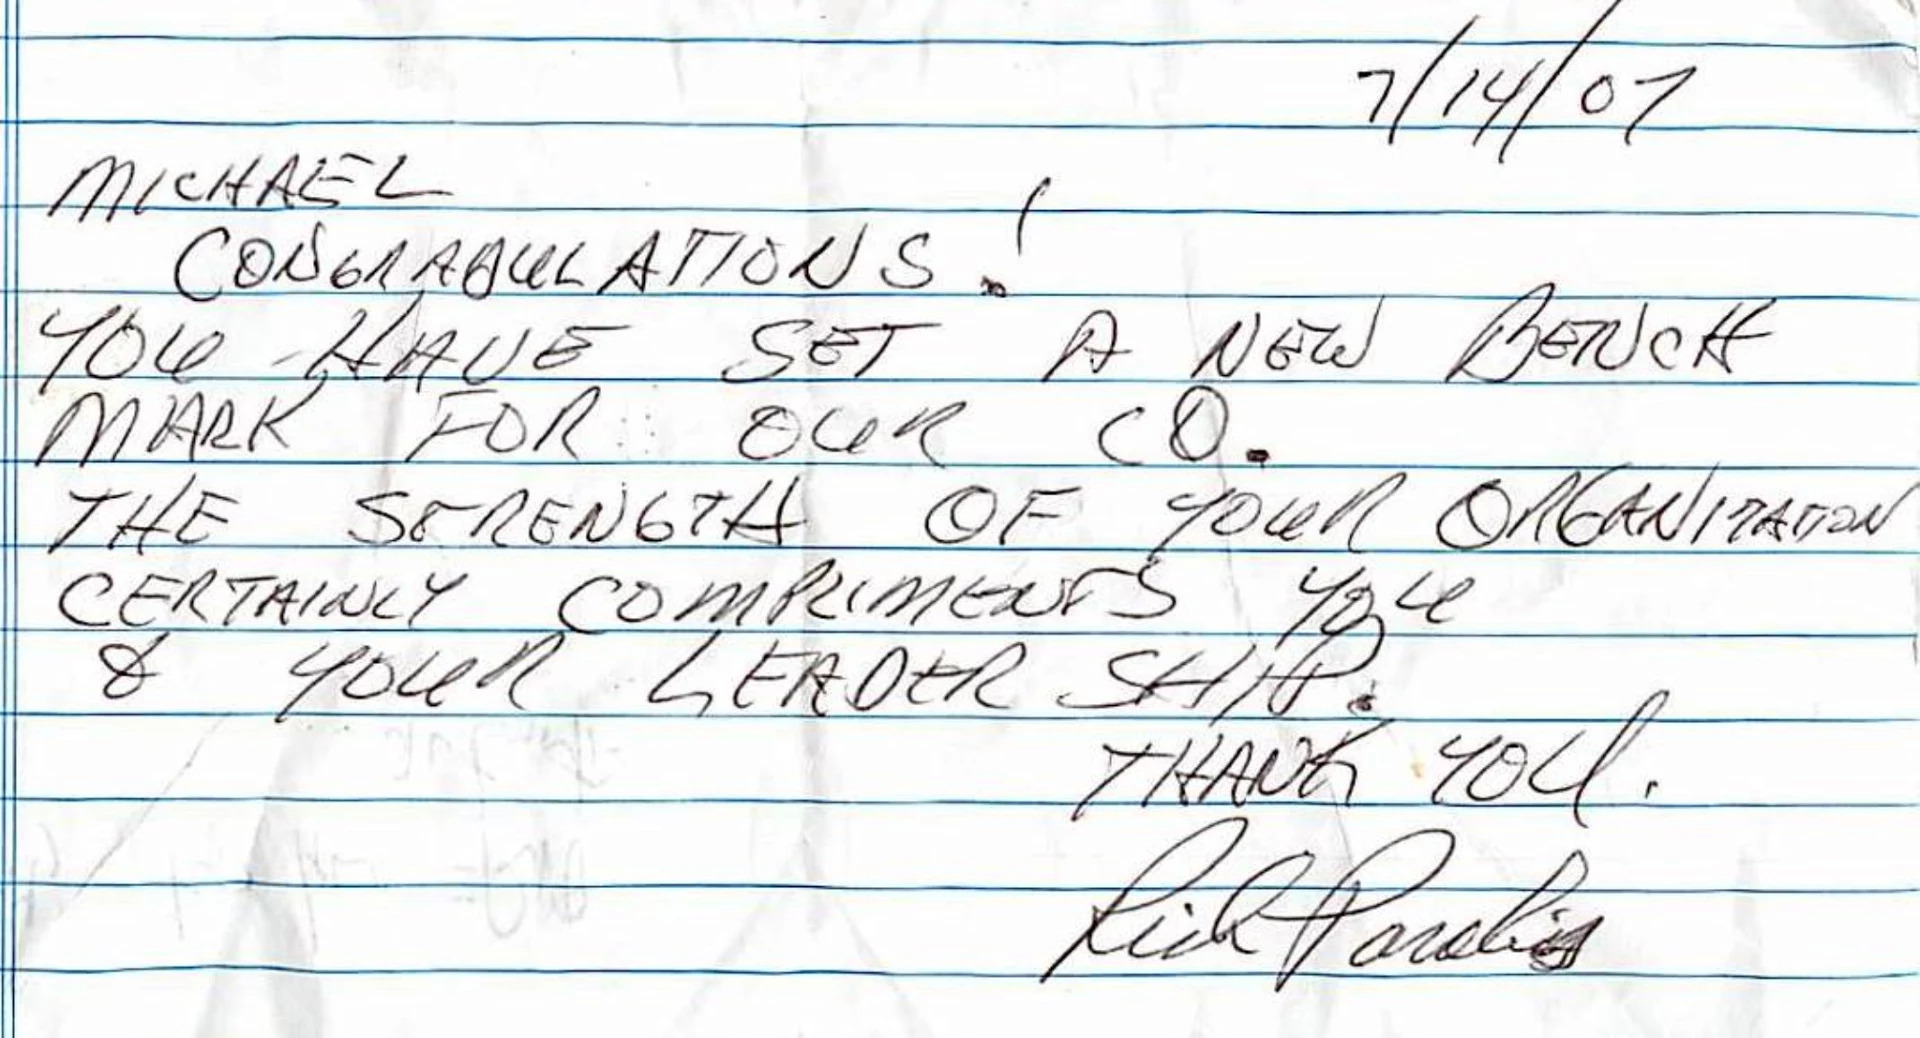 7/14/07
MICHAEL
CONGRADULATIONS!
YOU HAVE SET A NEW BENCH
MARK FOR OUR CO.
THE STRENGTH OF YOUR ORGANIZATION
CERTAINLY COMPLIMENTS YOU
& YOUR LEADERSHIP.
THANK YOU.
Rick